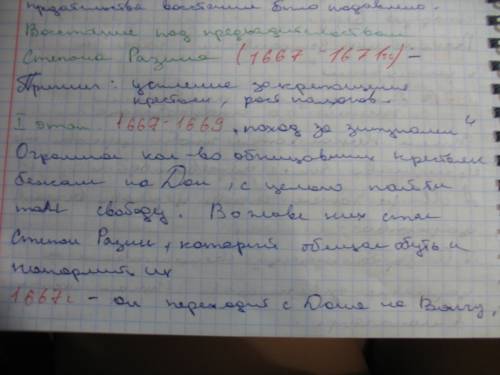 предательства восстание было подавлено.
Восстание под предводительством
Степана Разина (1667 - 1671гг) –
Причины: усиление закрепощения
крестьян, рост налогов.
I этап 1667-1669 „поход за зипунами"
Огромное кол-во обнищавших крестьян
бежали на Дон, с целью найти
там свободу. Во главе них стал
Степан Разин, который обещал обуть и
накормить их
1667г - он переходит с Дона на Волгу,